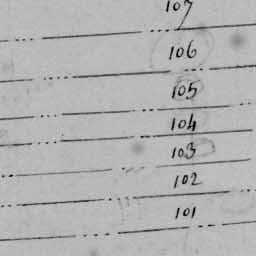 107
106
105
104
103
102
101